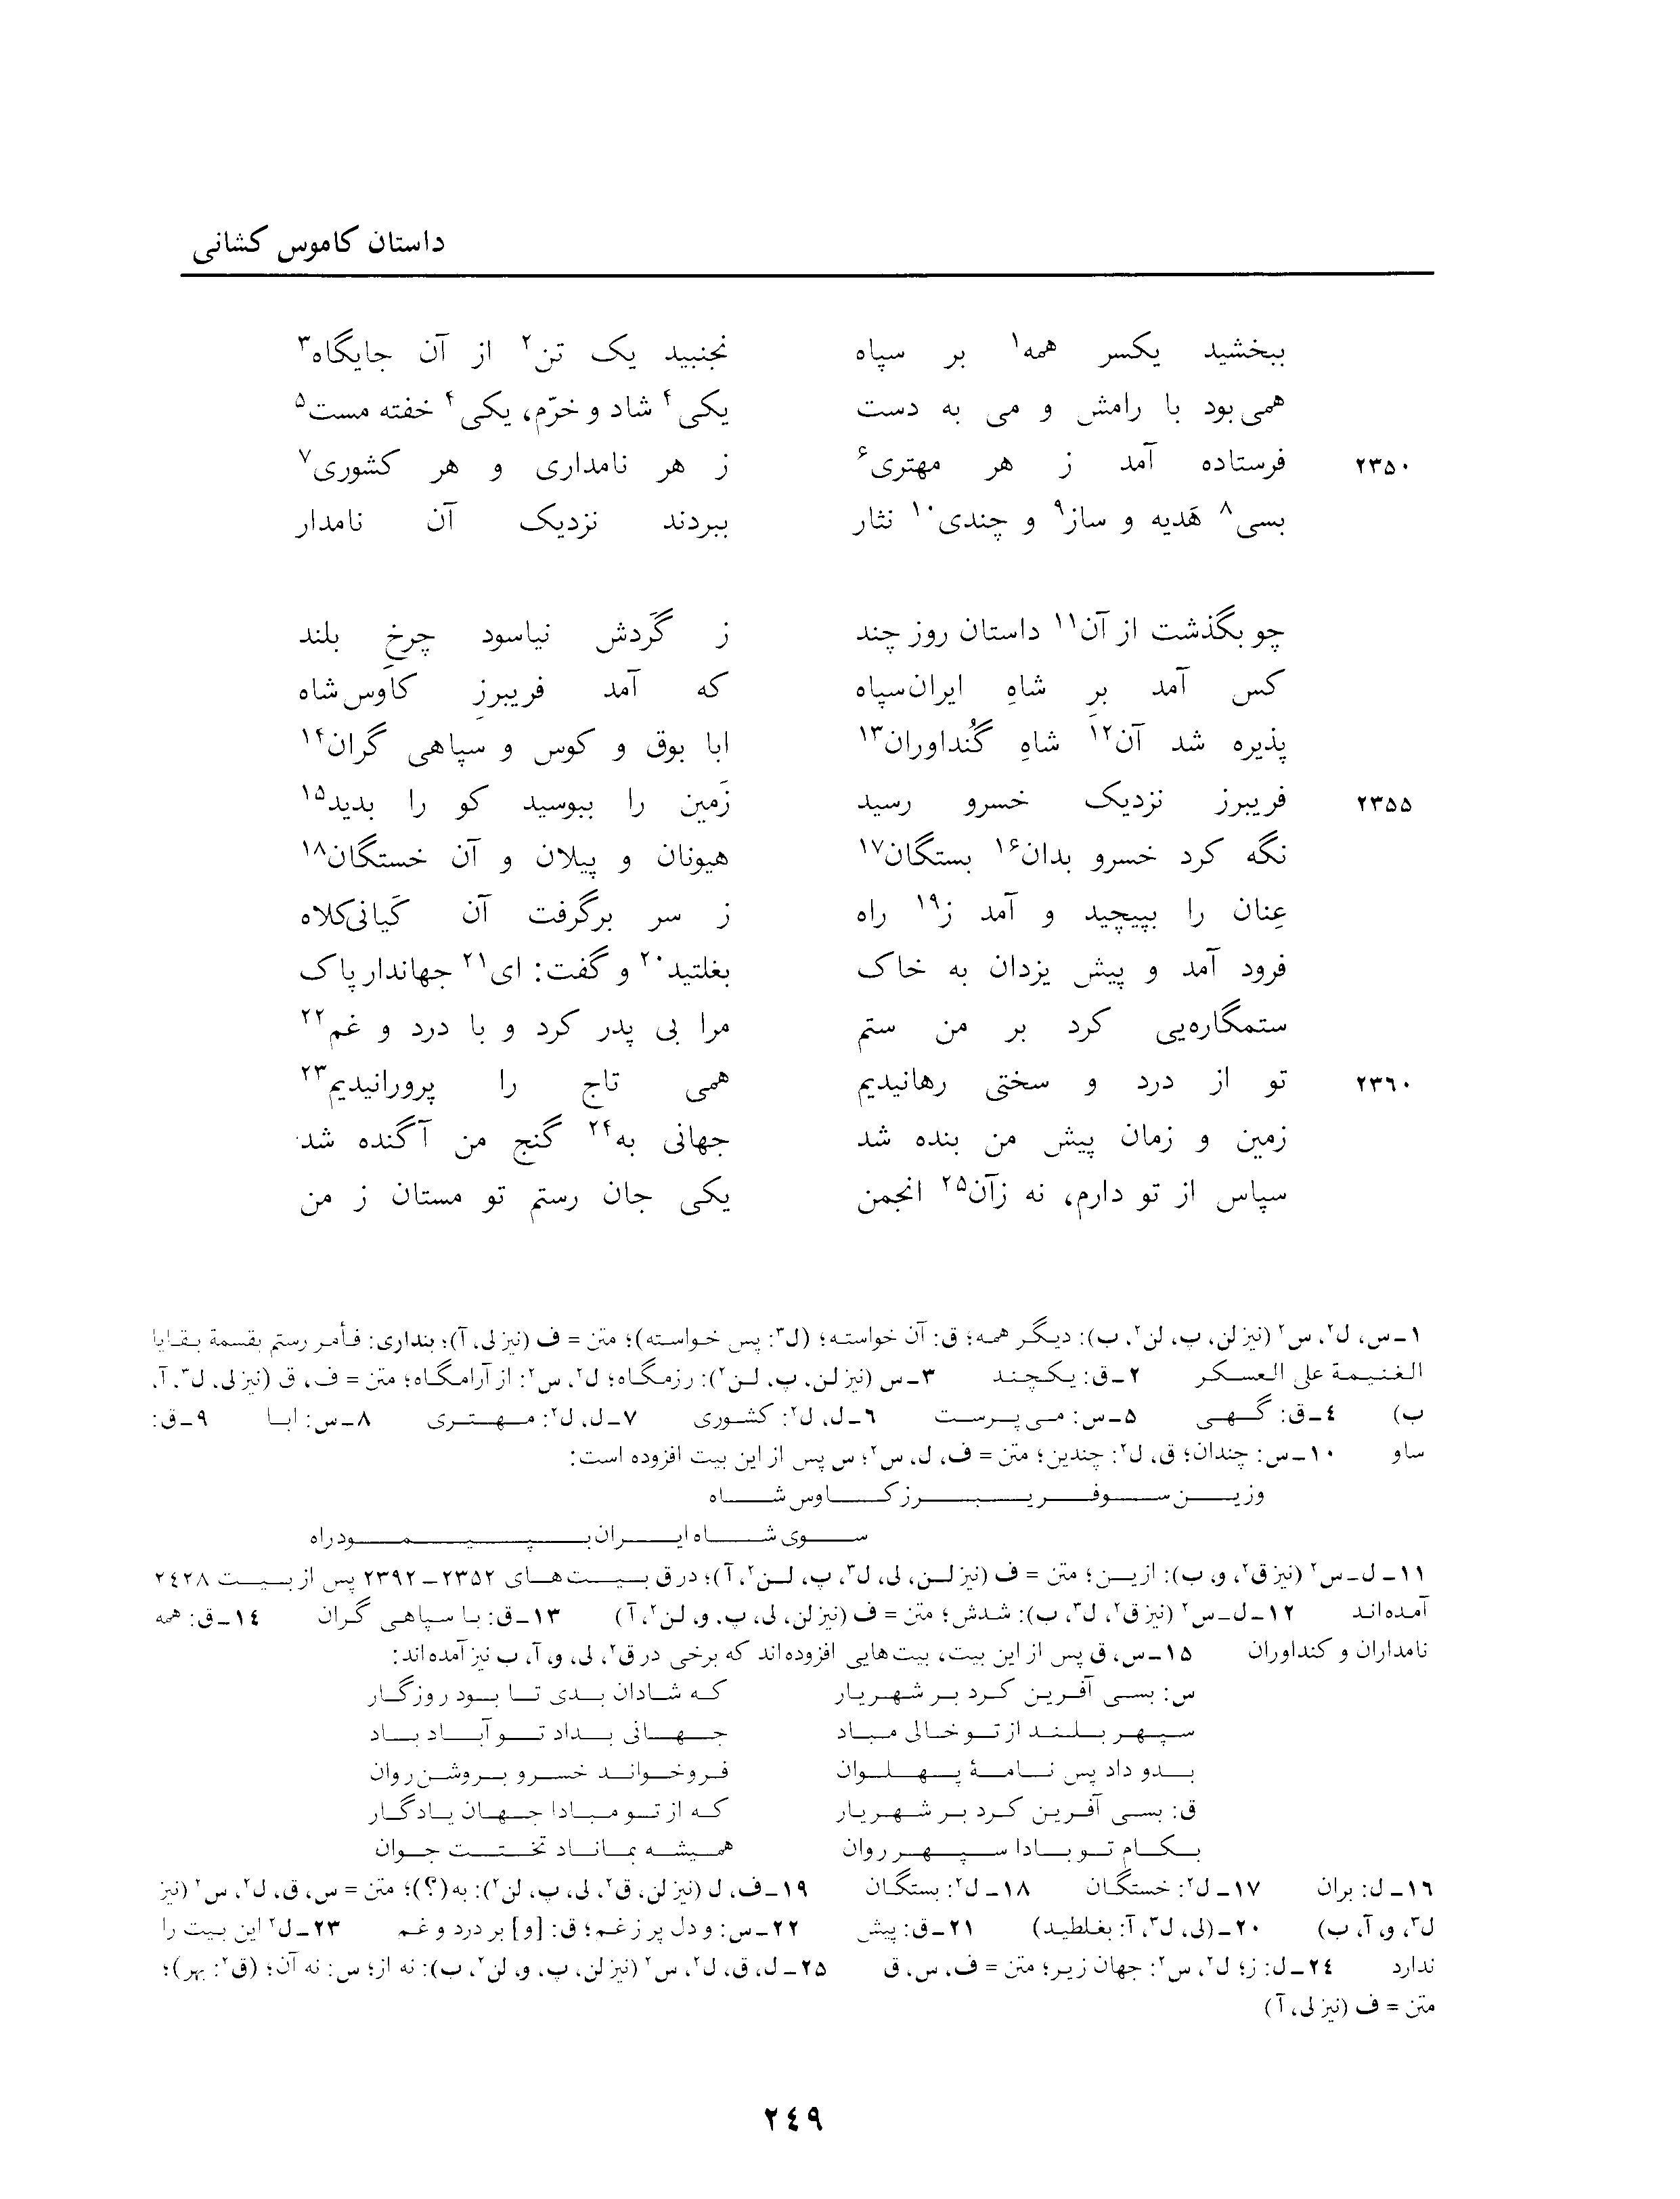 داستان کاموس کشانی
ببخشید یکسر همه۱ بر سپاه نجنبید یک تن۲ از آن جایگاه۳
همی‌بود با رامش و می به دست یکی۴ شاد و خرّم، یکی۴ خفته مست۵
۲۳۵۰ فرستاده آمد ز هر مهتری۶ ز هر نامداری و هر کشوری۷
بسی۸ هَدیه و ساز۹ و چندی۱۰ نثار ببردند نزدیک آن نامدار
چو بگذشت از آن۱۱ داستان روز چند ز گَردش نیاسود چرخِ بلند
کس آمد برِ شاهِ ایران‌سپاه که آمد فریبرزِ کاوس‌شاه
پذیره شد آن۱۲ شاهِ گُنداوران۱۳ ابا بوق و کوس و سپاهی گران۱۴
۲۳۵۵ فریبرز نزدیک خسرو رسید زَمین را ببوسید کو را بدید۱۵
نگه کرد خسرو بدان۱۶ بستگان۱۷ هیونان و پیلان و آن خستگان۱۸
عِنان را بپیچید و آمد ز۱۹ راه ز سر برگرفت آن کَیانی‌کلاه
فرود آمد و پیش یزدان به خاک بغلتید۲۰ و گفت: ای۲۱ جهاندار پاک
ستمگاره‌یی کرد بر من ستم مرا بی پدر کرد و با درد و غم۲۲
۲۳۶۰ تو از درد و سختی رهانیدیم همی تاج را پرورانیدیم۲۳
زمین و زمان پیش من بنده شد جهانی به۲۴ گنج من آگنده شد
سپاس از تو دارم، نه زآن۲۵ انجمن یکی جان رستم تو مستان ز من
۱ـ س، ل۲، س۲ (نیز لن، پ، لن۲، ب): دیگر همه؛ ق: آن خواسته؛ (ل۳: پس خواسته)؛ متن = ف (نیز لی، آ)؛ بنداری: فأمر رستم بقسمة بقایا
الغنیمة علی العسکر ۲ـ ق: یکچند ۳ـ س (نیز لن، پ، لن۲): رزمگاه؛ ل۲، س۲: از آرامگاه؛ متن = ف، ق (نیز لی، ل۳، آ،
ب) ۴ـ ق: گهی ۵ـ س: می‌پرست ۶ـ ل، ل۲: کشوری ۷ـ ل، ل۲: مهتری ۸ـ س: ابا ۹ـ ق:
ساو ۱۰ـ س: چندان؛ ق، ل۲: چندین؛ متن = ف، ل، س۲؛ س پس از این بیت افزوده است:
وزین سو فریبرز کاوس شاه
سوی شاه ایران بپیمود راه
۱۱ـ ل ـ س۲ (نیز ق۲، و، ب): ازین؛ متن = ف (نیز لن، لی، ل۳، پ، لن۲، آ)؛ در ق بیت‌های ۲۳۵۲ ـ ۲۳۹۲ پس از بیت ۲۴۲۸
آمده‌اند ۱۲ـ ل ـ س۲ (نیز ق۲، ل۳، ب): شدش؛ متن = ف (نیز لن، لی، پ، و، لن۲، آ) ۱۳ـ ق: با سپاهی گران ۱۴ـ ق: همه
نامداران و کنداوران ۱۵ـ س، ق پس از این بیت، بیت‌هایی افزوده‌اند که برخی در ق۲، لی، و، آ، ب نیز آمده‌اند:
س: بسی آفرین کرد بر شهریار که شادان بدی تا بود روزگار
سپهر بلند از تو خالی مباد جهانی بداد تو آباد باد
بدو داد پس نامهٔ پهلوان فروخواند خسرو بروشن‌روان
ق: بسی آفرین کرد بر شهریار که از تو مبادا جهان یادگار
بکام تو بادا سپهر روان همیشه بماناد تختت جوان
۱۶ـ ل: بران ۱۷ـ ل۲: خستگان ۱۸ـ ل۲: بستگان ۱۹ـ ف، ل (نیز لن، ق۲، لی، پ، لن۲): به(؟)؛ متن = س، ق، ل۲، س۲ (نیز
ل۳، و، آ، ب) ۲۰ـ (لی، ل۳، آ: بغلطید) ۲۱ـ ق: پیش ۲۲ـ س: و دل پر زغم؛ ق: [و] بر درد و غم ۲۳ـ ل۲ این بیت را
ندارد ۲۴ـ ل: ز؛ ل۲، س۲: جهان زیر؛ متن = ف، س، ق ۲۵ـ ل، ق، ل۲، س۲ (نیز لن، پ، و، لن۲، ب): نه از؛ س: نه آن؛ (ق۲: بهر)؛
متن = ف (نیز لی، آ)
۲۴۹